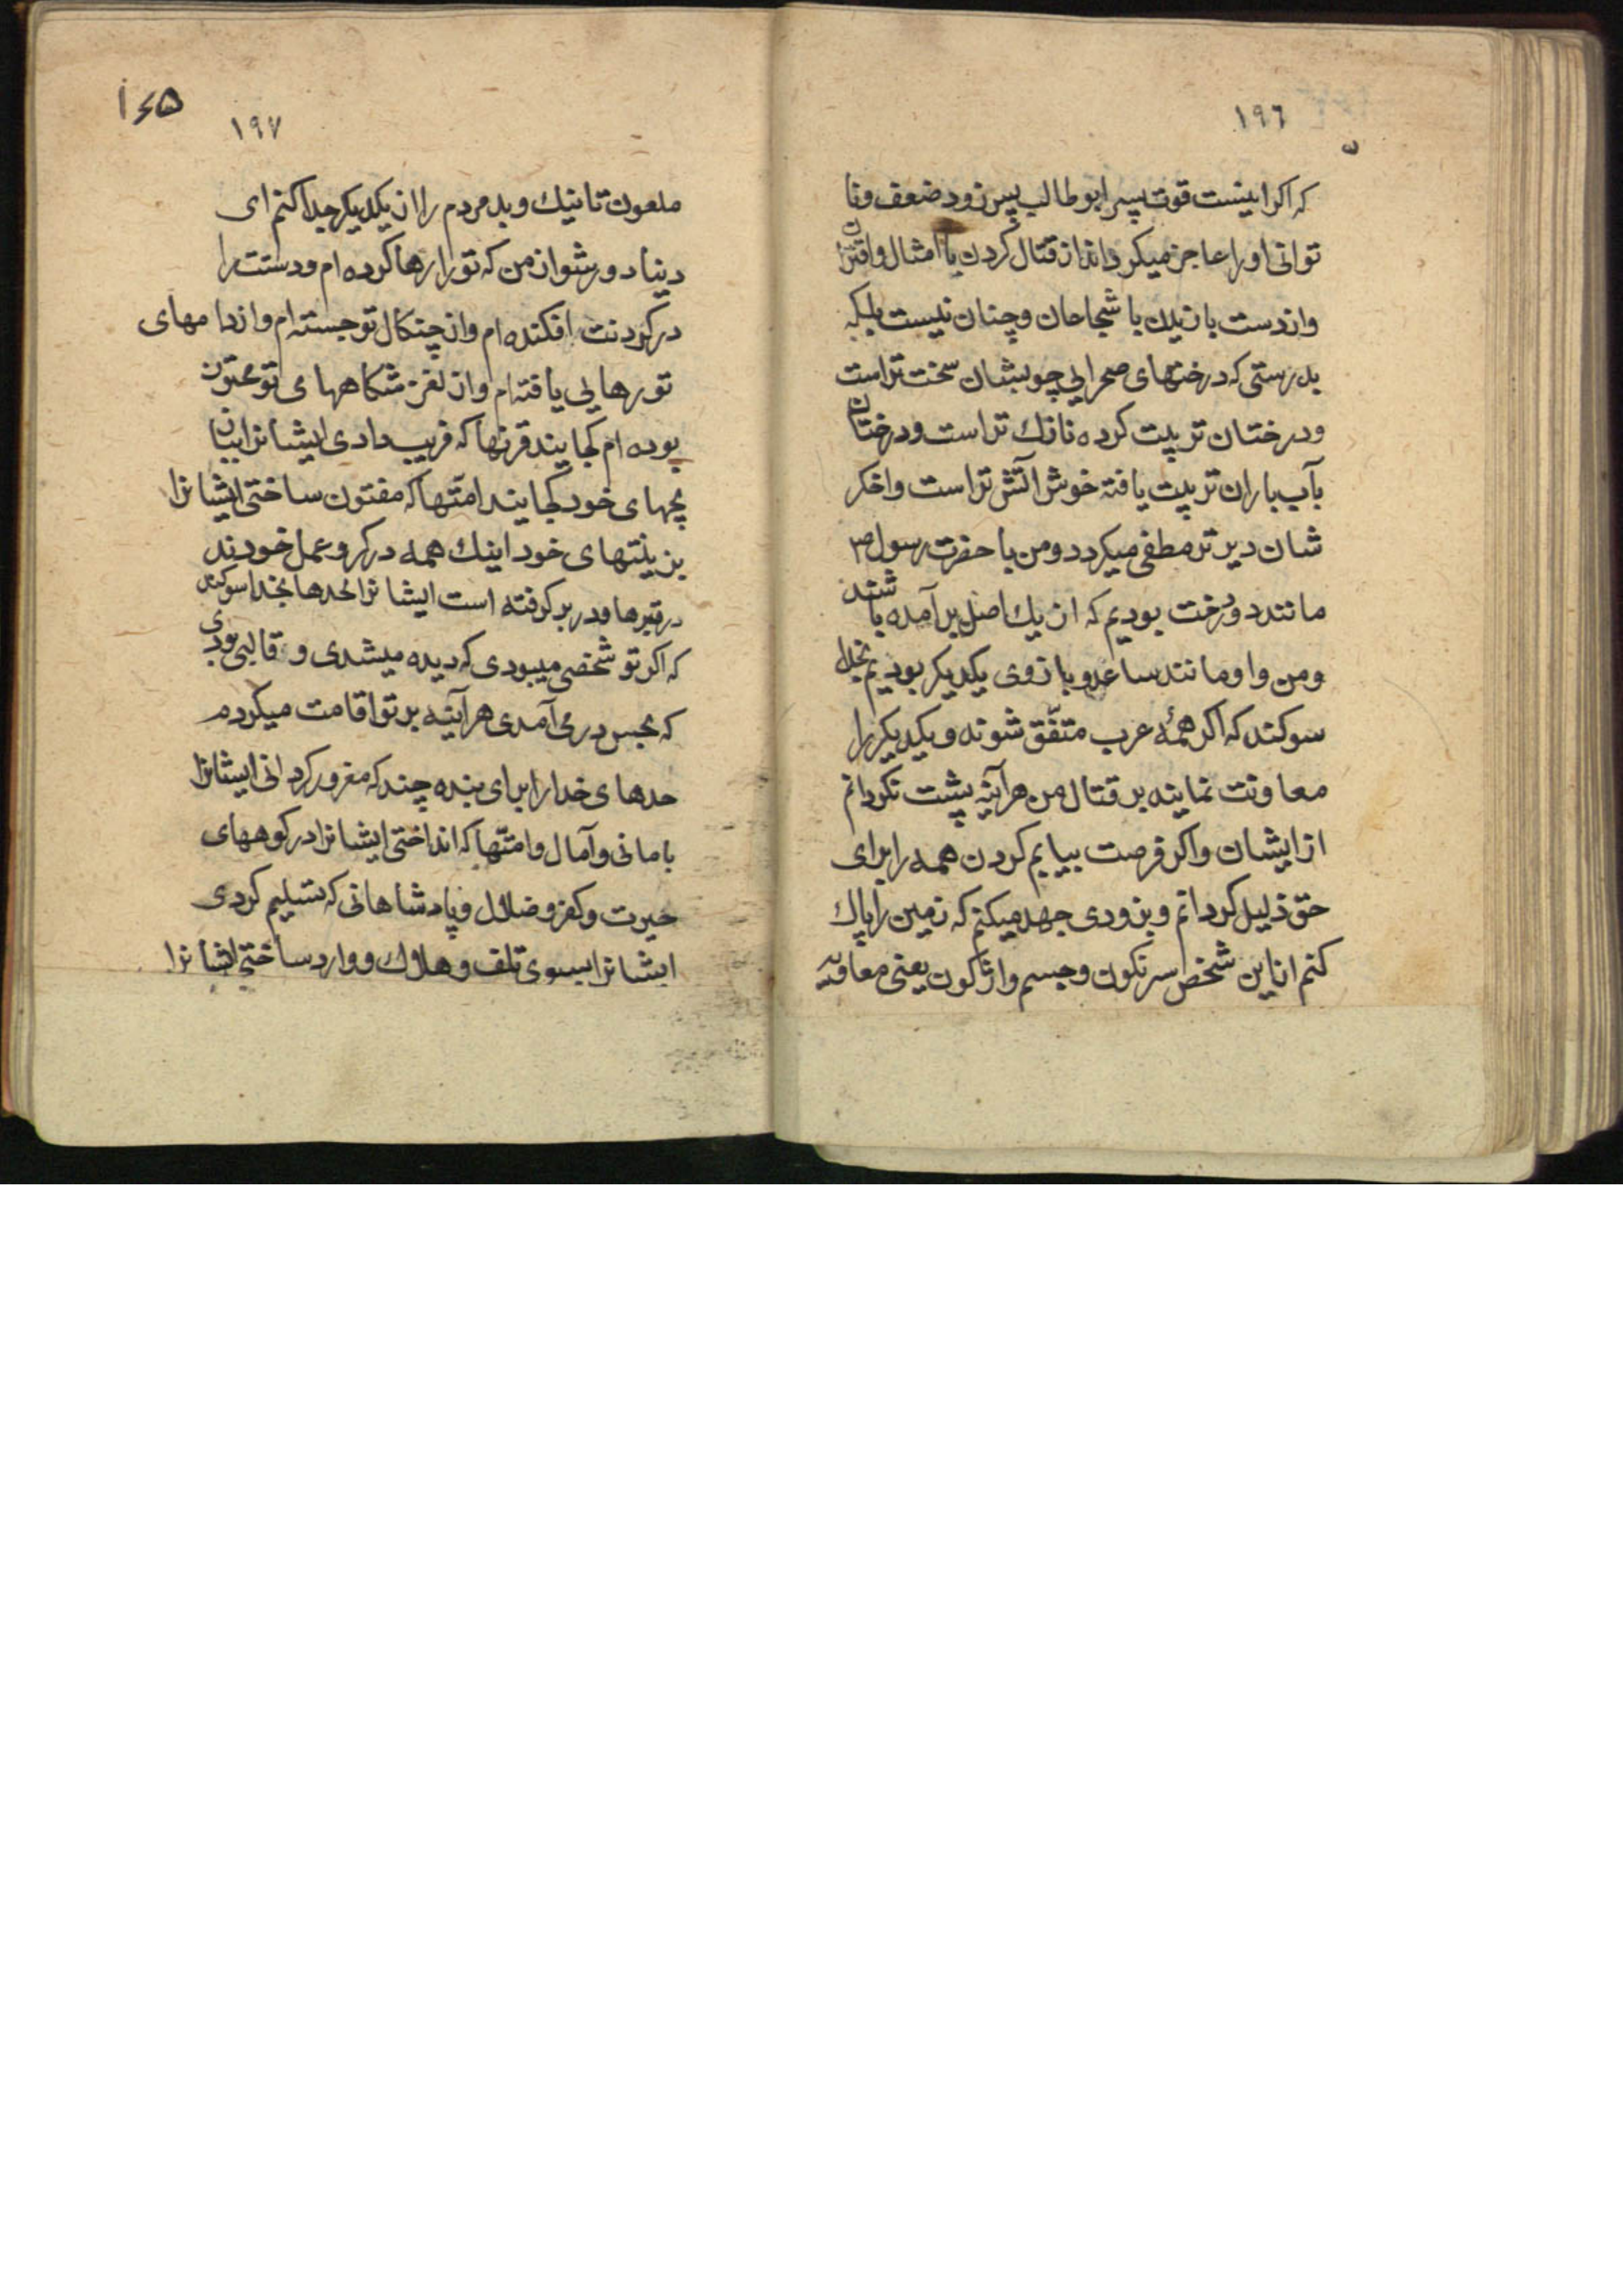 ١٩٦
که اکر اینست قوت پسر ابو طالب پس زود ضعف و نا
توانی او را عاجز میکرداند از قتال کردن با امثال و اقران
و از دست بازیدن با شجاعان و چنان نیست بلکه
بدرستی که درختهای صحرایی چوبشان سخت تر است
و درختان تربیت کرده نازک تر است و درختان
بآب باران تربیت یافته خوش آتش تر است و اخکر
شان دیرتر مطفی میکردد و من با حضرت رسول ص
مانند دو درخت بودیم که از یک اصل برآمده باشند
و من و او مانند ساعد و بازوی یکدیکر بودیم بخدا
سوکند که اکر همهٔ عرب متفّق شوند و یکدیکر را
معاونت نمایند بر قتال من هرآینه پشت نکردانم
از ایشان و اکر فرصت بیابم کردن همه را برای
حق ذلیل کردانم و بزودی جهد میکنم که زمین را پاک
کنم از این شخص سرنکون و جسم واژکون یعنی معاویه
١٤٥
١٩٧
ملعون تا نیک و بد مردم را از یکدیکر جدا کنم ای
دنیا دور شو از من که تو را رها کرده ام و دستت را
در کردنت افکنده ام و از چنکال تو جسته ام و از دامهای
تو رهایی یافته ام و از لغزشکاههای تو مجتون
بوده ام کجایند قرنها که فریب دادی ایشانرا ببازی
بچهای خود کجایند امّتها که مفتون ساختی ایشانرا
بزینتهای خود اینک همه در کرو عمل خودند
در قبرها و در بر کرفته است ایشانرا لحدها بخدا سوکند
که اکر تو شخصی میبودی که دیده میشدی و قالبی بودی
که بحس در می آمدی هرآینه بر تو اقامت میکردم
حدهای خدا را برای بنده چند که مغرور کردانی ایشانرا
بامانی و آمال و امتّها که انداختی ایشانرا در کوههای
حیرت و کفر و ضلال و پادشاهانی که تسلیم کردی
ایشانرا بسوی تلف و هلاک و وارد ساختی ایشانرا